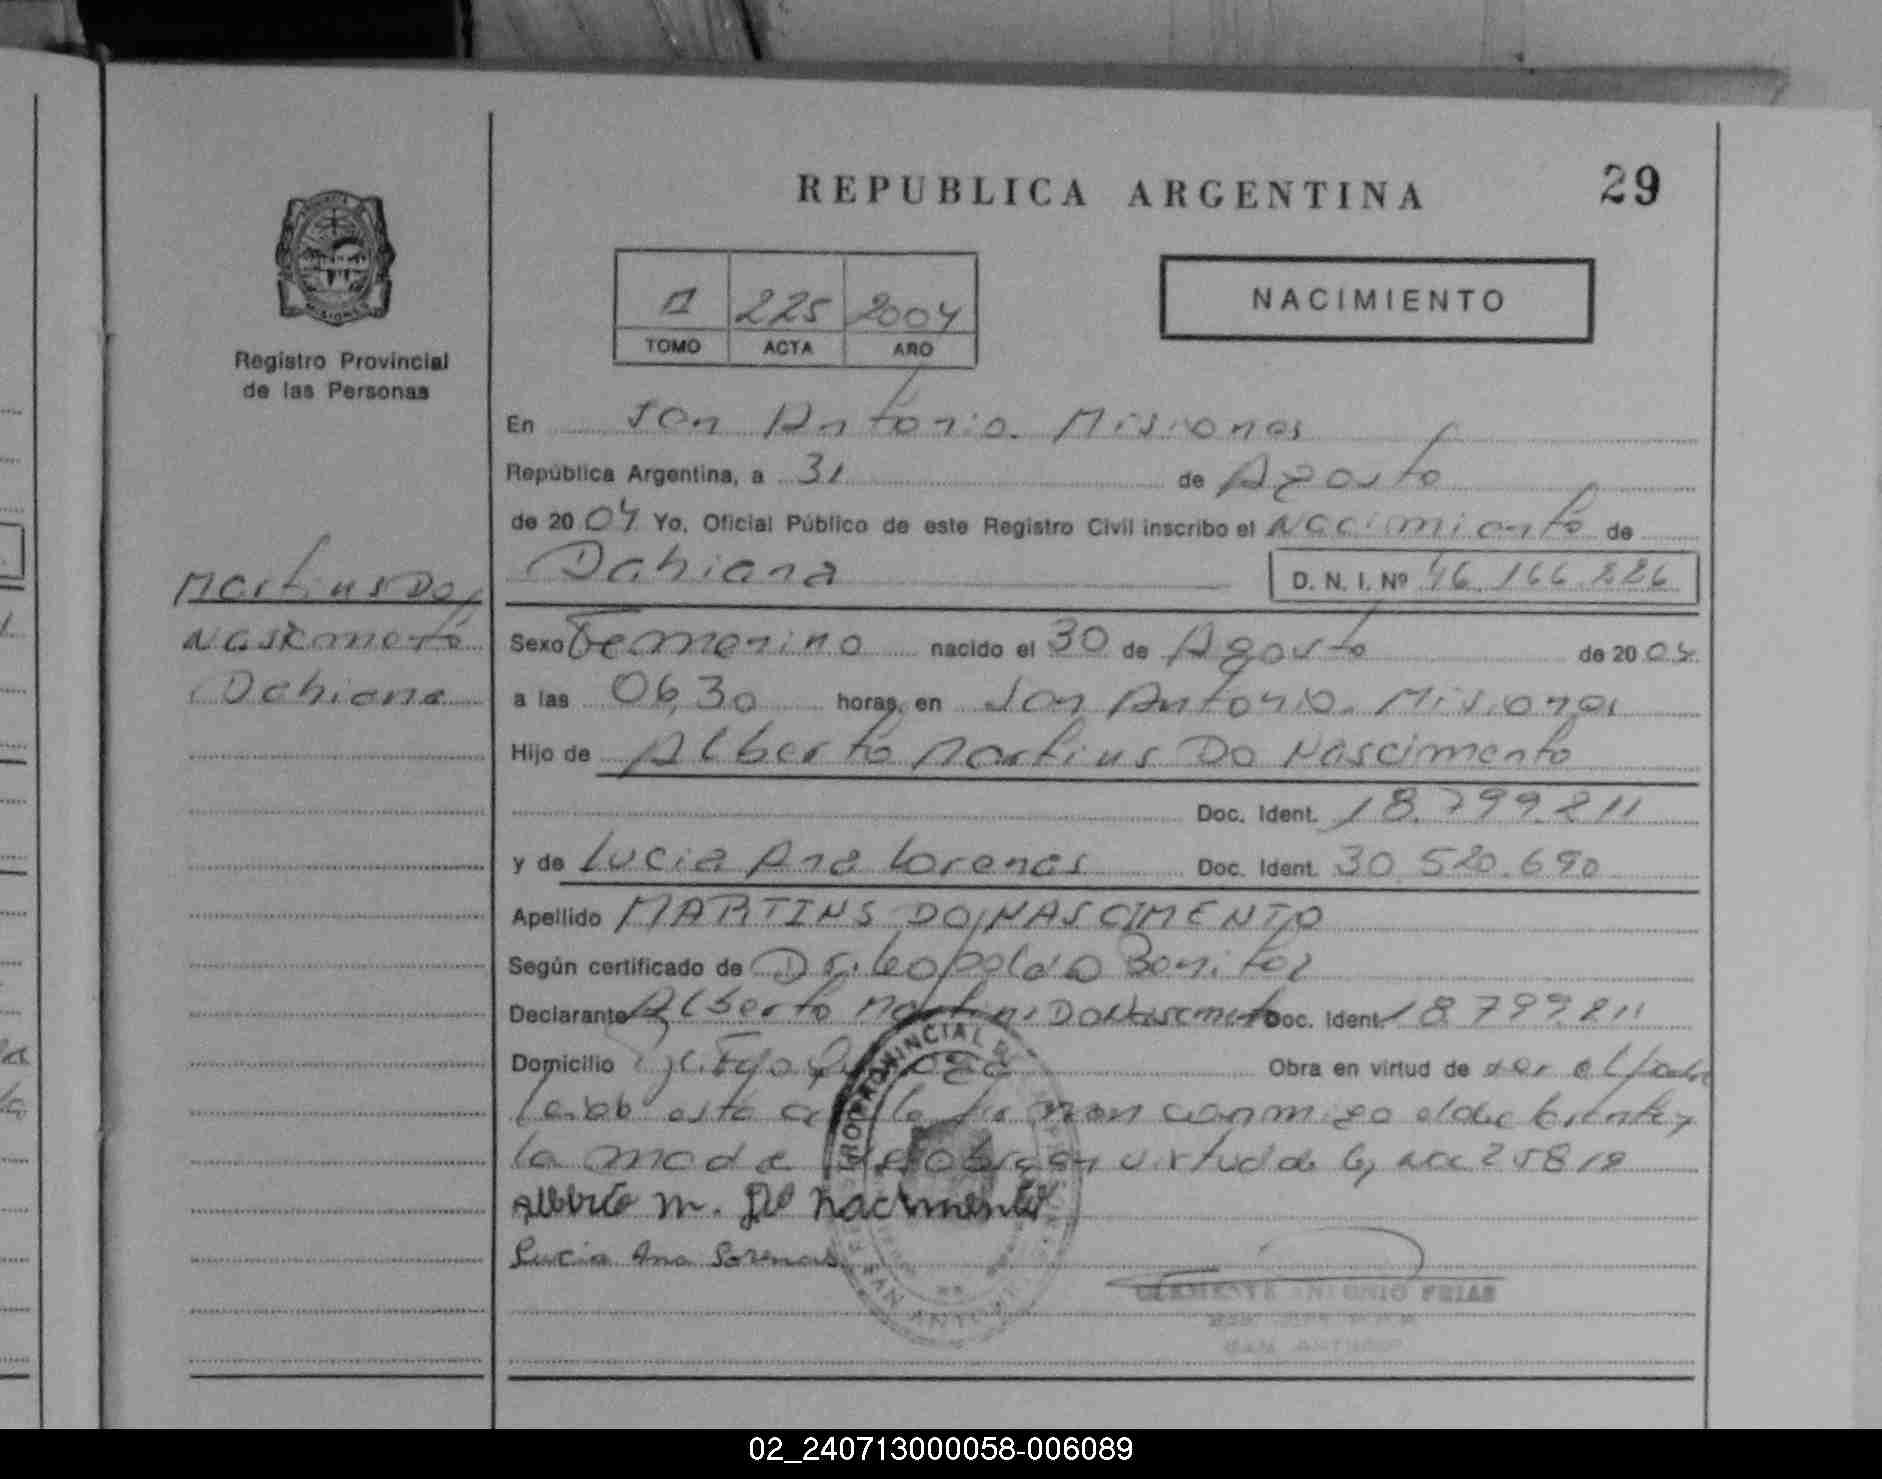 REPUBLICA ARGENTINA
29
NACIMIENTO
225 2004
TOMO ACTA AÑO
Registro Provincial
de las Personas
En San Antonio. Misiones
República Argentina, a 31 de Agosto
de 2004 Yo, Oficial Público de este Registro Civil inscribo el Nacimiento de
Dahiana
D. N. I. Nº 46.166.226
Martins Do
Nascimento
Dahiana
Sexo Femenino nacido el 30 de Agosto de 2004
a las 06,30 horas, en San Antonio. Misiones
Hijo de Alberto Martins Do Nascimento
Doc. Ident. 18.799.211
y de Lucia Ana Lorenas Doc. Ident. 30.520.690
Apellido MARTINS DO NASCIMENTO
Según certificado de Dr. Leopoldo Benitez
Declarante Alberto Martins Do Nascimento Doc. Ident. 18.799.211
Domicilio Obra en virtud de ser el Padre
firman conmigo el declarante y
la madre obra en virtud de Ley
Alberto M. Do Nacimento
Lucia Ana Lorenas
CLEMENTE ANTONIO FRIAS
SAN ANTONIO
02_240713000058-006089